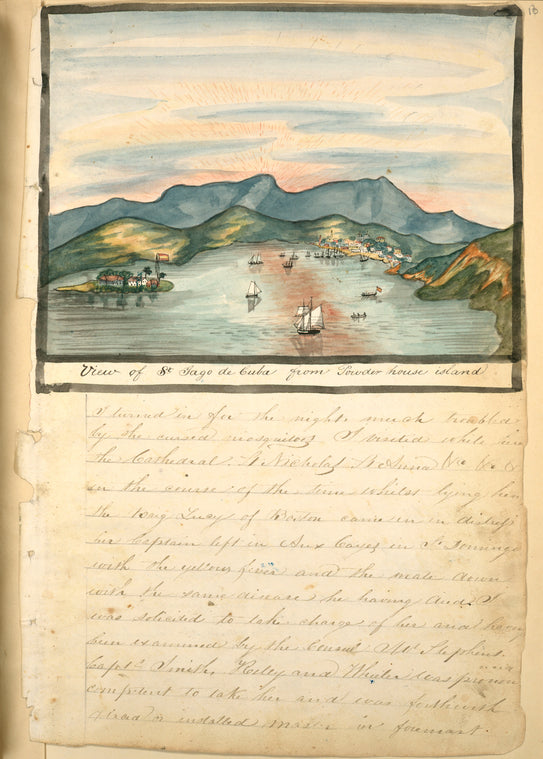 18
View of St Jago de Cuba from Powder house island
I turned in for the night, much troubled
by the cursed mosquitoes I visited while in
the Cathedral. St Nicholas St Anna &c &c &
in the course of the time whilst lying here
the brig Lucy of Boston came in in distress
her Captain left in Aux Cayes in St Domingo
with the yellow fever and the mate down
with the same disease he having died I
was solicited to take charge of her and having
been examined by the Consul Mr Stephens
Capts Smith, and Wheeler was proven
competent to take her and was forthwith
or installed Master in